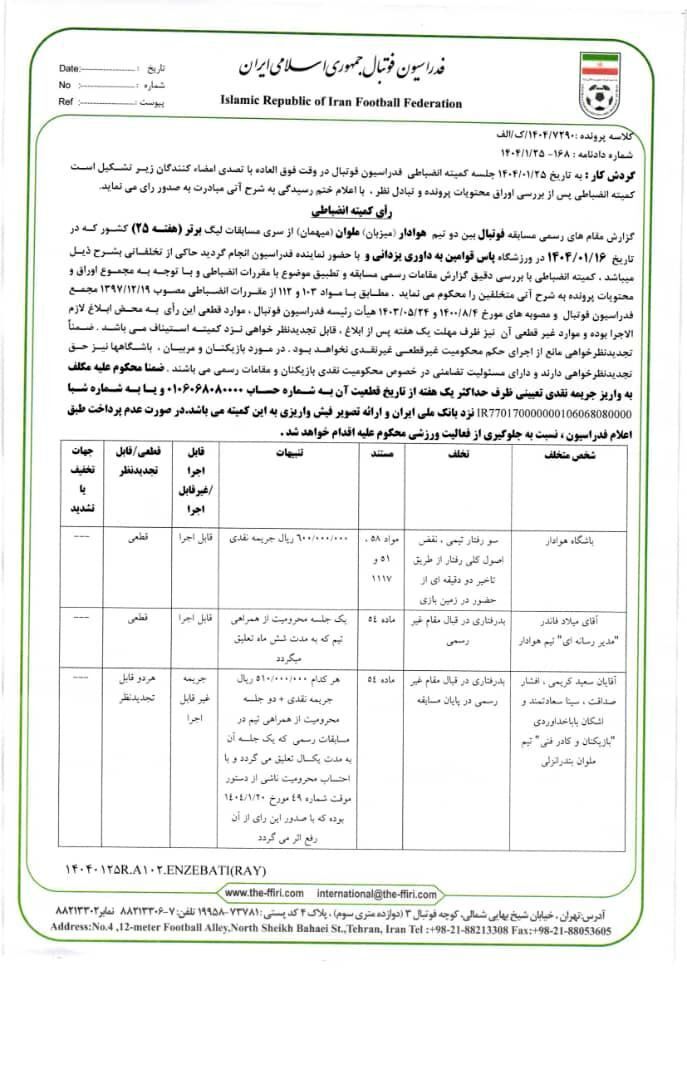 فدراسیون فوتبال جمهوری اسلامی ایران
Islamic Republic of Iran Football Federation
Date:-------------------: تاریخ
No :-------------------: شماره
Ref :-------------------: پیوست
کلاسه پرونده :۱۴۰۴/۷۲۹۰/ک/الف
شماره دادنامه :۱۶۸- ۱۴۰۴/۱/۲۵
گردش کار : به تاریخ ۱۴۰۴/۰۱/۲۵ جلسه کمیته انضباطی فدراسیون فوتبال در وقت فوق العاده با تصدی امضاء کنندگان زیر تشکیل است
کمیته انضباطی پس از بررسی اوراق محتویات پرونده و تبادل نظر ، با اعلام ختم رسیدگی به شرح آتی مبادرت به صدور رای می نماید.
رأی کمیته انضباطی
گزارش مقام های رسمی مسابقه فوتبال بین دو تیم هوادار (میزبان) ملوان (میهمان) از سری مسابقات لیگ برتر (هفته ۲۵) کشور که در
تاریخ ۱۴۰۴/۰۱/۱۶ در ورزشگاه پاس قوامین به داوری یزدانی و با حضور نماینده فدراسیون انجام گردید حاکی از تخلفاتی بشرح ذیل
میباشد ، کمیته انضباطی با بررسی دقیق گزارش مقامات رسمی مسابقه و تطبیق موضوع با مقررات انضباطی و با توجه به مجموع اوراق و
محتویات پرونده به شرح آتی متخلفین را محکوم می نماید . مطابق با مواد ۱۰۳ و ۱۱۲ از مقررات انضباطی مصوب ۱۳۹۷/۱۲/۱۹ مجمع
فدراسیون فوتبال و مصوبه های مورخ ۱۴۰۰/۸/۴ و ۱۴۰۳/۰۵/۲۴ هیأت رئیسه فدراسیون فوتبال ، موارد قطعی این رأی به محض ابلاغ لازم
الاجرا بوده و موارد غیر قطعی آن نیز ظرف مهلت یک هفته پس از ابلاغ ، قابل تجدیدنظر خواهی نزد کمیته استیناف می باشد . ضمناً
تجدیدنظرخواهی مانع از اجرای حکم محکومیت غیرقطعی غیرنقدی نخواهد بود . در مورد بازیکنان و مربیان ، باشگاهها نیز حق
تجدیدنظرخواهی دارند و دارای مسئولیت تضامنی در خصوص محکومیت نقدی بازیکنان و مقامات رسمی می باشند . ضمنا محکوم علیه مکلف
به واریز جریمه نقدی تعیینی ظرف حداکثر یک هفته از تاریخ قطعیت آن به شماره حساب ۰۱۰۶۰۶۸۰۸۰۰۰۰ و یا به شماره شبا
IR770170000000106068080000 نزد بانک ملی ایران و ارائه تصویر فیش واریزی به این کمیته می باشد.در صورت عدم پرداخت طبق
اعلام فدراسیون ، نسبت به جلوگیری از فعالیت ورزشی محکوم علیه اقدام خواهد شد .
شخص متخلف
تخلف
مستند
تنبیهات
قابل
اجرا
/غیرقابل
اجرا
قطعی/قابل
تجدیدنظر
جهات
تخفیف
یا
تشدید
باشگاه هوادار
سو رفتار تیمی ، نقض
اصول کلی رفتار از طریق
تاخیر دو دقیقه ای از
حضور در زمین بازی
مواد ۵۸ ،
۵۱ و
۱۱۱۷
۶۰۰/۰۰۰/۰۰۰ ریال جریمه نقدی
قابل اجرا
قطعی
---
آقای میلاد فاندر
"مدیر رسانه ای" تیم هوادار
بدرفتاری در قبال مقام غیر
رسمی
ماده ۵۴
یک جلسه محرومیت از همراهی
تیم که به مدت شش ماه تعلیق
میگردد
قابل اجرا
قطعی
---
آقایان سعید کریمی ، افشار
صداقت ، سینا سعادتمند و
اشکان باباخداوردی
"بازیکنان و کادر فنی" تیم
ملوان بندرانزلی
بدرفتاری در قبال مقام غیر
رسمی در پایان مسابقه
ماده ۵۴
هر کدام ۵۱۰/۰۰۰/۰۰۰ ریال
جریمه نقدی + دو جلسه
محرومیت از همراهی تیم در
مسابقات رسمی که یک جلسه آن
به مدت یکسال تعلیق می گردد و با
احتساب محرومیت ناشی از دستور
موقت شماره ۴۹ مورخ ۱۴۰۴/۱/۲۰
بوده که با صدور این رای از آن
رفع اثر می گردد
جریمه
غیر قابل
اجرا
هردو قابل
تجدیدنظر
---
۱۴۰۴۰۱۲۵R.A۱۰۲.ENZEBATI(RAY)
www.the-ffiri.com international@the-ffiri.com
آدرس:تهران ، خیابان شیخ بهایی شمالی، کوچه فوتبال ۳ (دوازده متری سوم) ، پلاک ۴ کد پستی : ۷۳۷۸۱-۱۹۹۵۸ تلفن: ۷-۸۸۲۱۳۳۰۶ نمابر ۸۸۲۱۳۳۰۲
Address:No.4 ,12-meter Football Alley,North Sheikh Bahaei St.,Tehran, Iran Tel :+98-21-88213308 Fax:+98-21-88053605